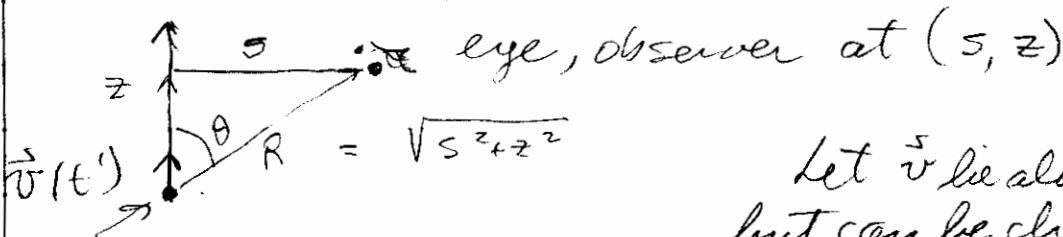 s eye, observer at (s, z)
z
θ
R = √s²+z²
v⃗(t')
Let v⃗ lie al
but can be ch